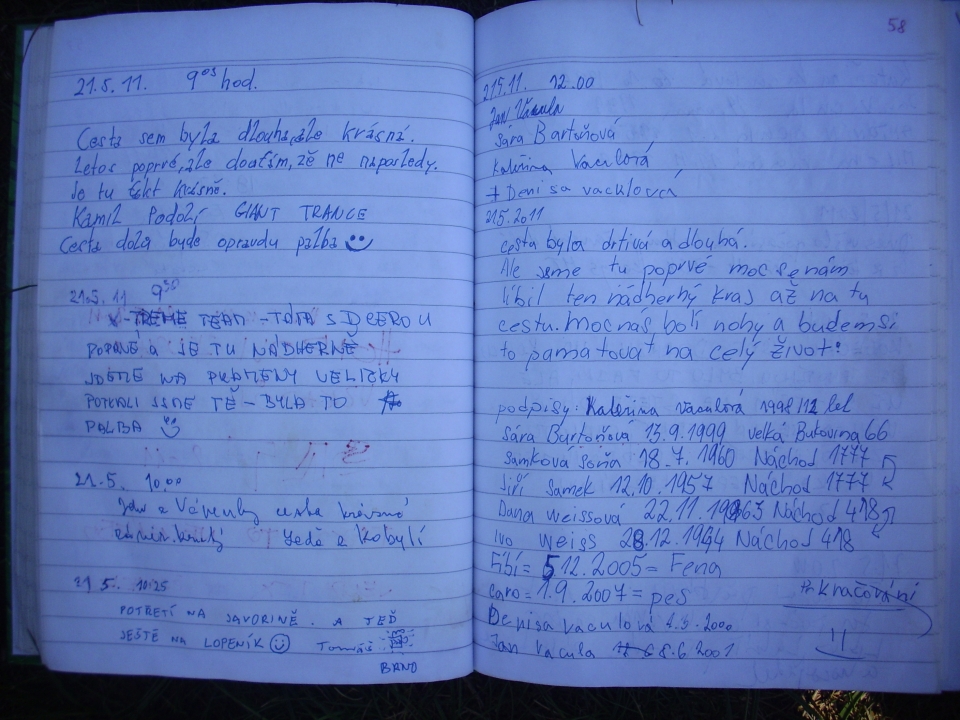 21.5.11. 9⁰⁵ hod.
Cesta sem byla dlouhá, ale krásná.
Letos poprvé, ale doufám, že ne naposledy.
Je tu fakt krásně.
Kamil Podoží GIANT TRANCE
Cesta dolů bude opravdu palba
21.5.11 9³⁰
TEAM - TOTA S DCEROU
POPRVÉ A JE TU NÁDHERNĚ
JDEME NA PRAMENY VELIČKY
POTKALI JSME TĚ - BYLA TO
PALBA
21.5. 10.00
cesta krásná
Kobylí
21.5. 10:25
POTŘETÍ NA JAVOŘINĚ. A TEĎ
JEŠTĚ NA LOPENÍK TOMÁŠ
BRNO
58
21.5.11. 12.00
Jan Vacula
Sára Bartoňová
Kateřina Vaculová
+ Denisa Vaculová
21.5.2011
cesta byla drtivá a dlouhá.
Ale jsme tu poprvé moc se nám
líbil ten nádherný kraj až na tu
cestu. Moc nás bolí nohy a budem si
to pamatovat na celý život.
podpisy: Kateřina Vaculová 1998/12 let
Sára Bartoňová 13.9.1999 velká Bukovina 66
Samková Soňa 18.7.1960 Náchod 1777
Jiří Samek 12.10.1957 Náchod 1777
Dana Weissová 22.11.1963 Náchod 418
Ivo Weiss 28.12.1944 Náchod 418
Fíbí = 5 12.2005 = Fena
caro = 1.9.2007 = pes
Denisa Vaculová
Jan Vacula 8.6.2001